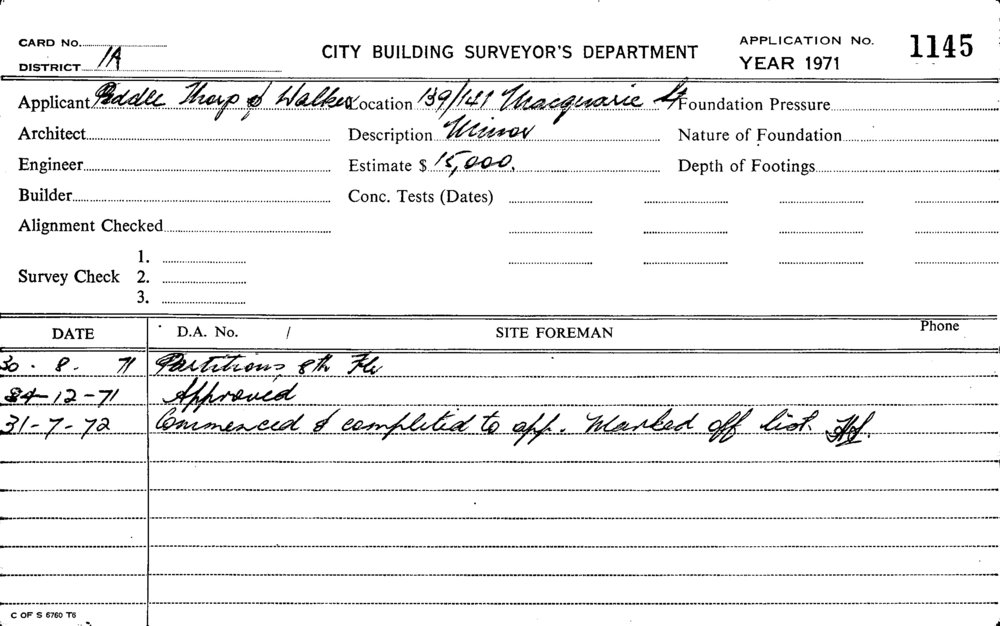 CARD No.
DISTRICT 1A
CITY BUILDING SURVEYOR'S DEPARTMENT
APPLICATION No. 1145
YEAR 1971
Applicant Peddle Thorp & Walker Location 139/141 Macquarie St Foundation Pressure
Architect Description Minor Nature of Foundation
Engineer Estimate $ 15,000. Depth of Footings
Builder Conc. Tests (Dates)
Alignment Checked
1.
Survey Check 2.
3.
DATE D.A. No. / SITE FOREMAN Phone
30 . 8 . 71 Partitions 8th Flr
-12-71 Approved
31-7-72 Commenced & completed to app. Marked off list.
C OF S 6760 T6